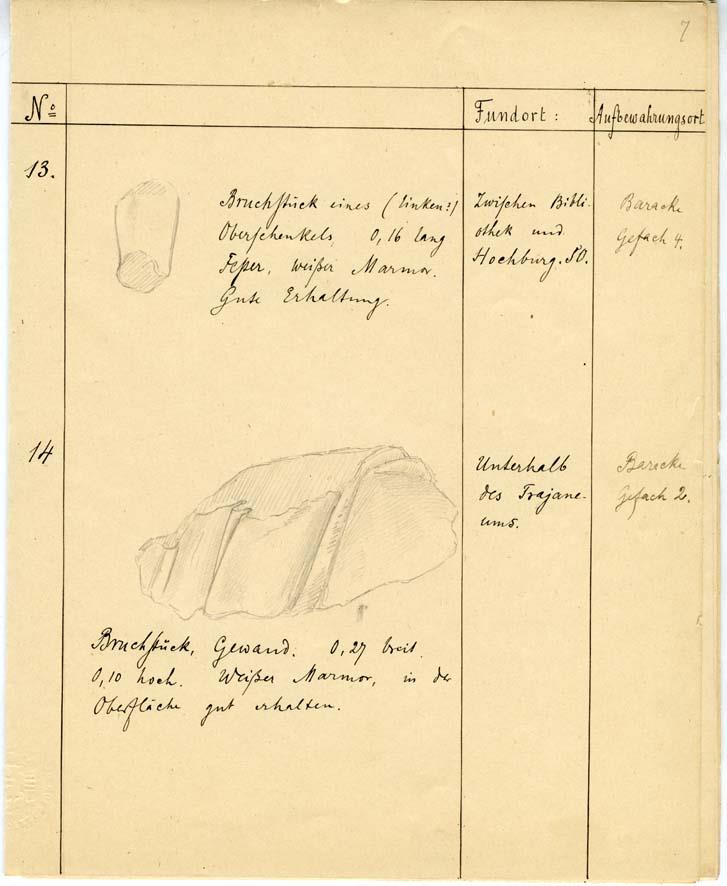 7
No Fundort: Aufbewahrungsort
13.
Bruchstück eines (linken?)
Oberschenkels 0,16 lang
weißer Marmor.
Gute Erhaltung.
Zwischen Bibli-
othek und
Hochburg. SO.
Baracke
Gefach 4.
14
Unterhalb
des Trajane-
ums.
Baracke
Gefach 2.
Bruchstück, Gewand. 0,27 breit.
0,10 hoch. Weißer Marmor, in der
Oberfläche gut erhalten.